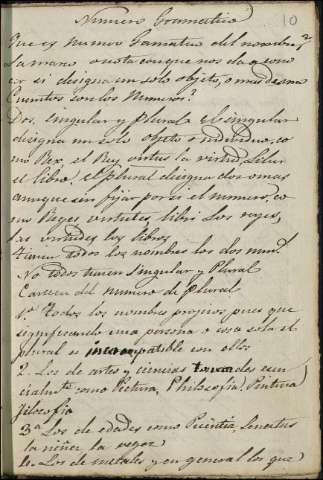 Numero Gramatico
10
Que es numero Gamatica del nombre?
La marca o nota con que nos da a cono
cer si designa un solo objeto, o mas de uno
Cuantos son los Numeros?
Dos, singular y plural el singular
designa un solo objeto o individuo, co
mo Rex, el Rey, virtus la virtud, Liber
el libro. el plural designa dos o mas
aunque sin fijar por si el numero, co
mo Reges virtutes, libri Los reyes,
las virtudes los libros
tienen todos los nombres los dos num.
No todos tienen Singular y Plural
Carecen del numero de plural
1.º todos los nombres propios pues que
significando una persona o cosa sola el
plural es incompatible con ellos
2. Los de artes y ciencias tomados esen
cialmte como Pictura, Philosofia, Pintura
filosofia
3.ª Los de edades como Pueritia, Senectus
la niñez la vegez
4. Los de metales y en general los que